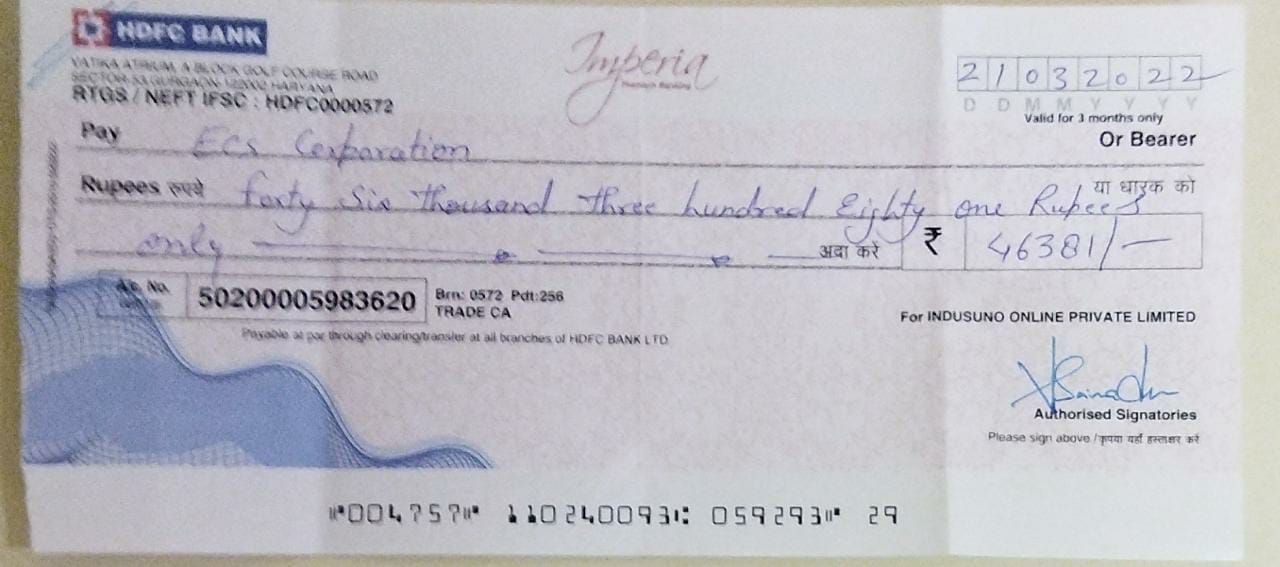 HDFC BANK
VATIKA ATRIUM, A BLOCK GOLF COURSE ROAD
SECTOR-53 GURGAON 122002 HARYANA
RTGS / NEFT IFSC : HDFC0000572
Imperia
Premium Banking
21032022
D D M M Y Y Y Y
Valid for 3 months only
Pay Ecs Corporation
Or Bearer
या धारक को
Rupees रुपये forty Six thousand three hundred Eighty one Rupees
only अदा करें ₹ 46381/-
A/c No. 50200005983620 Brn: 0572 Pdt:256
TRADE CA
For INDUSUNO ONLINE PRIVATE LIMITED
Payable at par through clearing/transfer at all branches of HDFC BANK LTD
Authorised Signatories
Please sign above / कृपया यहाँ हस्ताक्षर करें
⑈004757⑈ 110240093⑆ 059293⑈ 29